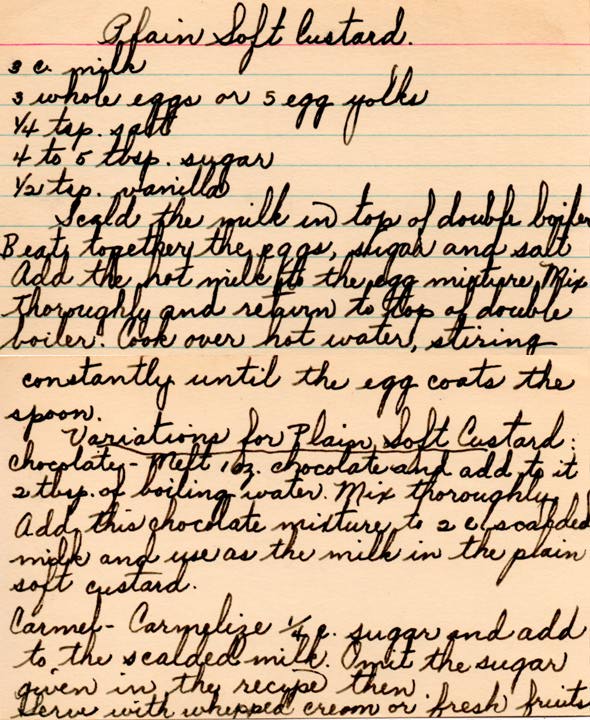 Plain Soft Custard.
3 c. milk
3 whole eggs or 5 egg yolks
1/4 tsp. salt
4 to 5 tbsp. sugar
1/2 tsp. vanilla
Scald the milk in top of double boiler
Beat together the eggs, sugar and salt
Add the hot milk to the egg mixture, Mix
thoroughly and return to top of double
boiler. Cook over hot water, stiring
constantly until the egg coats the
spoon.
Variations for Plain Soft Custard:
Chocolate - Melt 1 oz. chocolate and add to it
2 tbsp. of boiling water. Mix thoroughly.
Add this chocolate mixture to 2 c. scalded
milk and use as the milk in the plain
soft custard.
Carmel - Carmelize 1/4 c. sugar and add
to the scalded milk. Omit the sugar
given in the recipe then.
Serve with whipped cream or fresh fruits